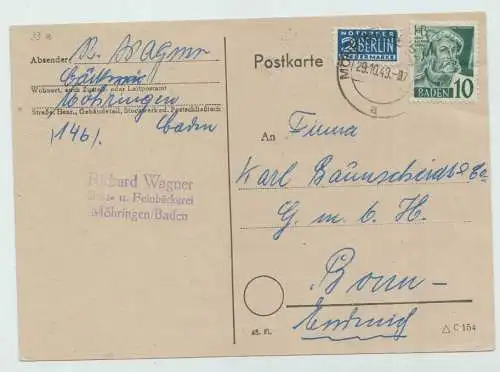 33 a
Absender: R. Wagner
Bäckerei
Wohnort, auch Zustell- oder Leitpostamt
Möhringen
Straße, Hausn., Gebäudeteil, Stockwerk od. Postschließfach
(14b) Baden
Richard Wagner
Brot- u. Feinbäckerei
Möhringen/Baden
Postkarte
NOTOPFER
2 BERLIN
STEUERMARKE
29.10.49.
a
BADEN 10
An Firma
Karl Baunscheidt & Co
G. m. b. H.
Bonn-
Endenich
△ C 154